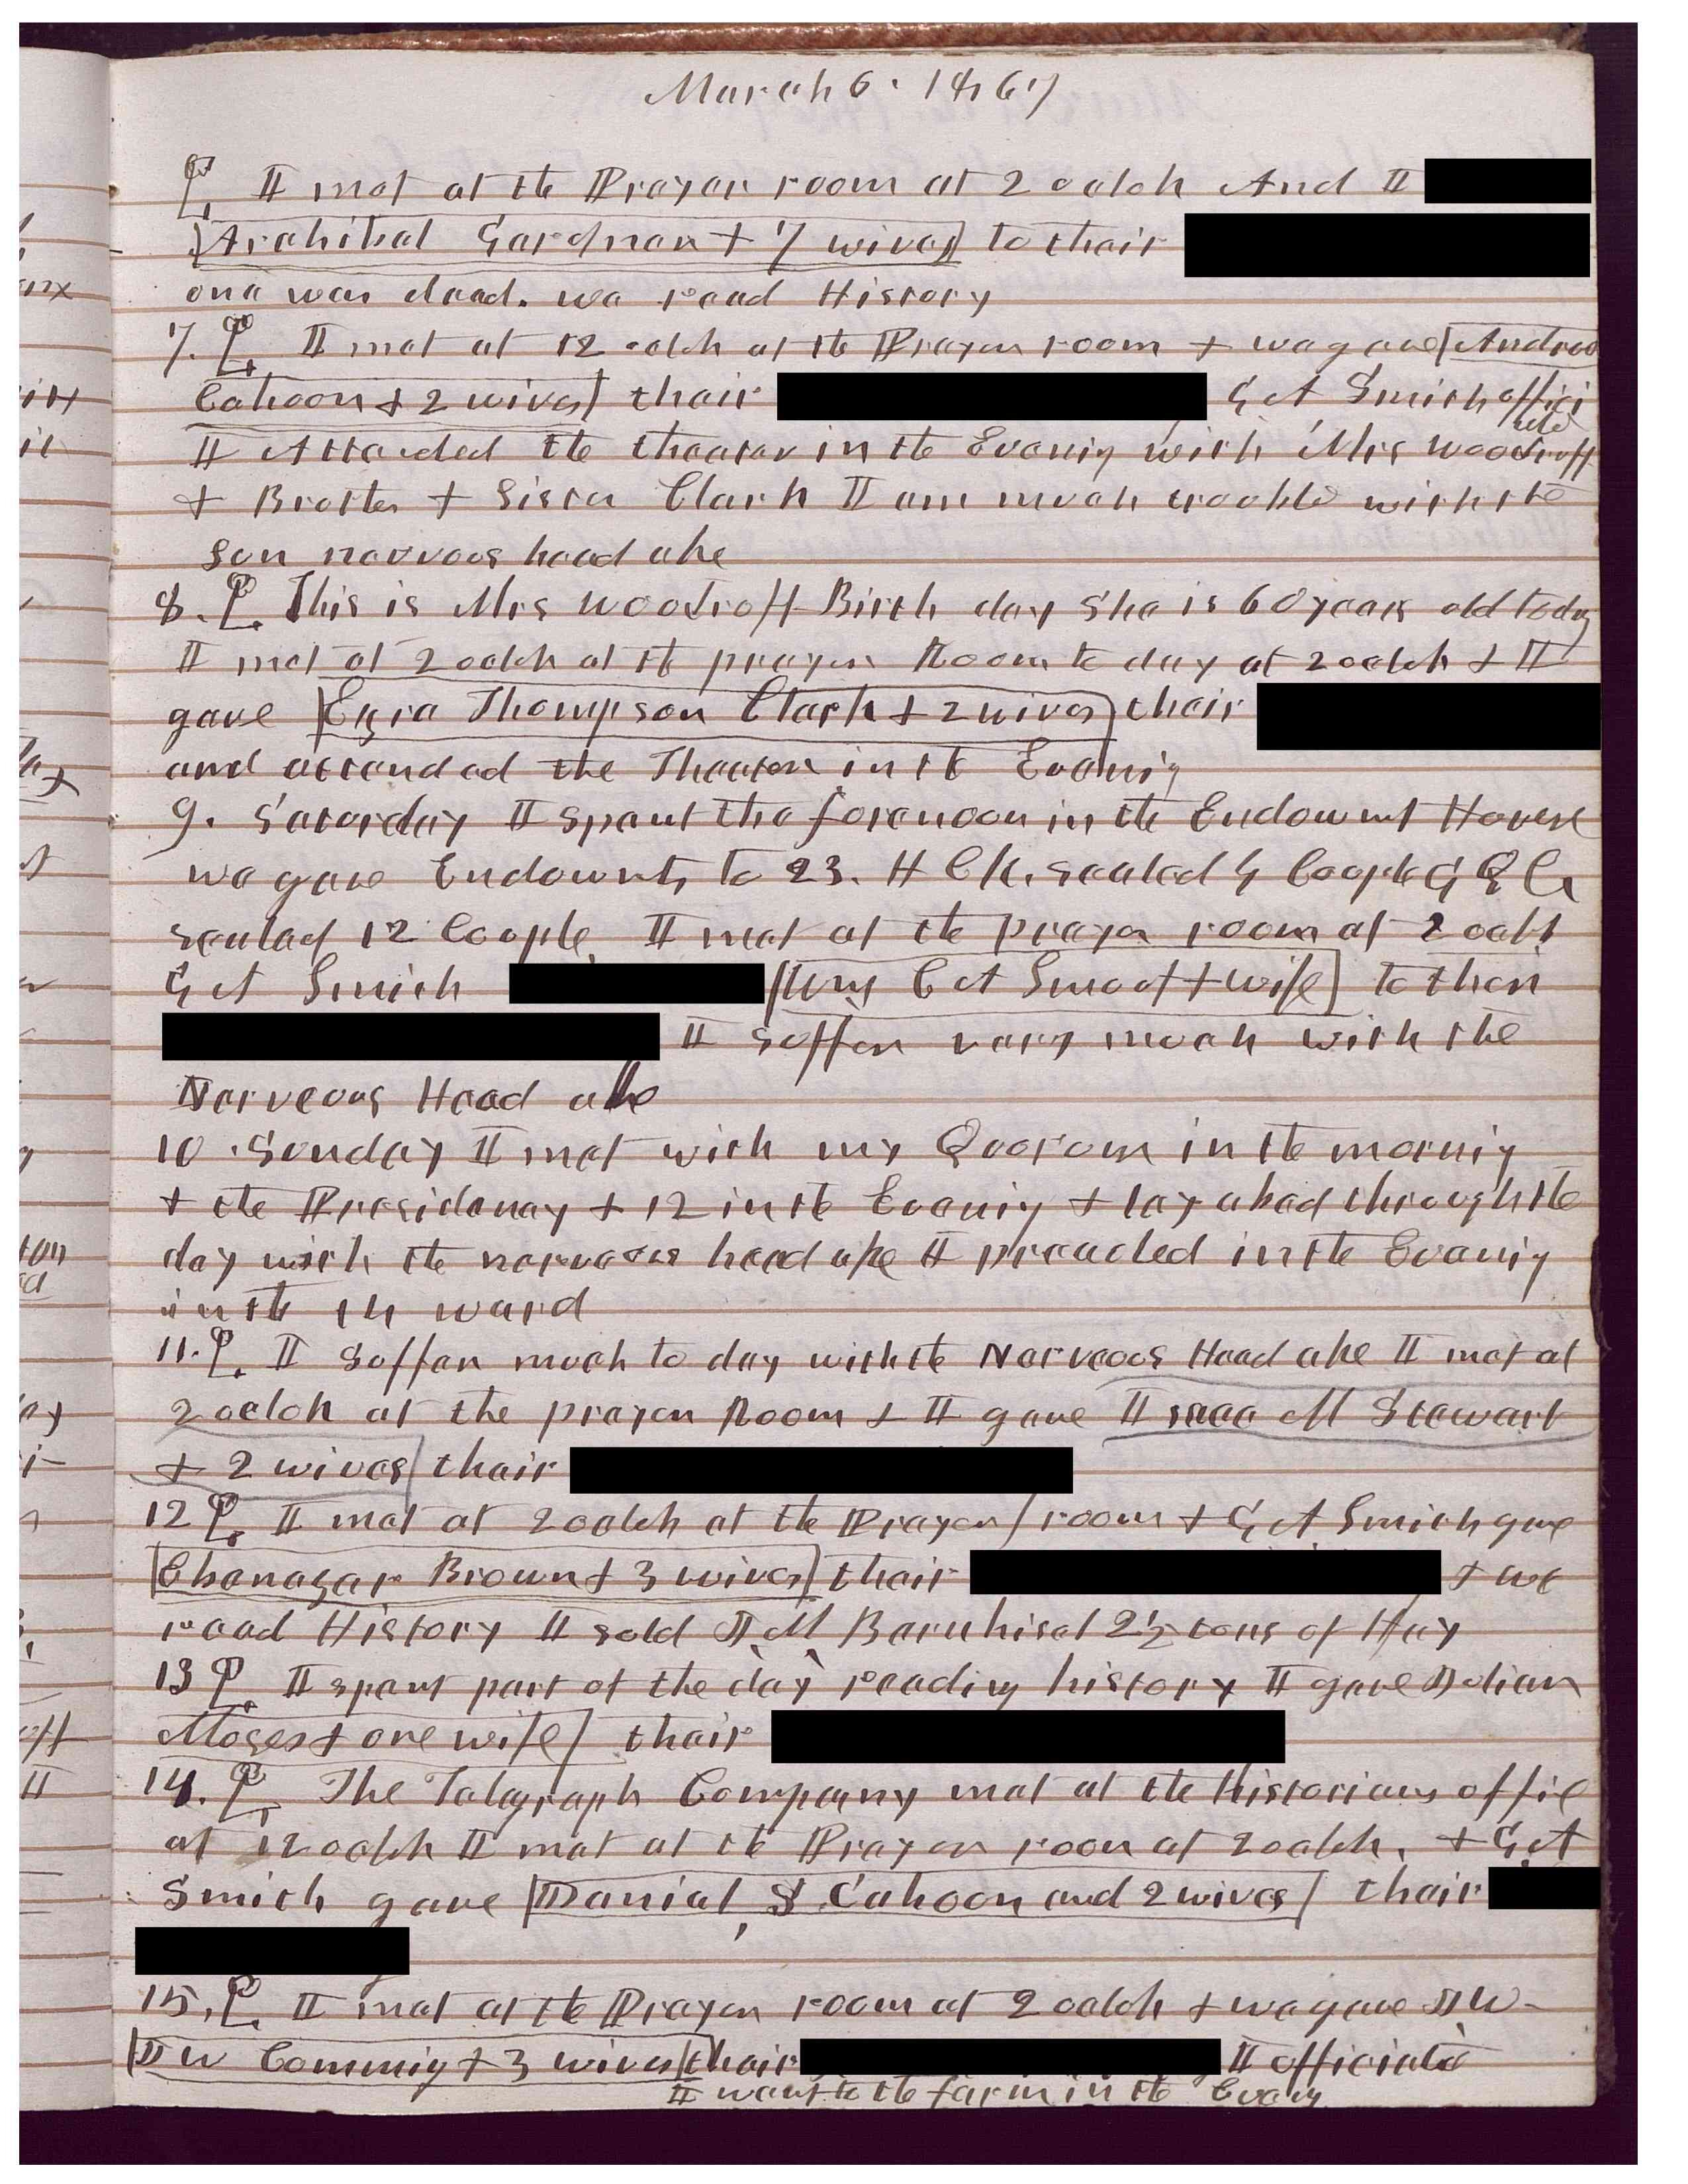 March 6. 1867
I met at the Prayer room at 2 oclok And I
Archibal Gardner + 7 wives to their
one was dead. we read History
7. I met at 12 oclok at the Prayer room + we gave Andrew
Cahoon + 2 wives their G A Smith offici
ated
I Attended the theater in the Evenig with Mrs Woodruff
+ Brother + Sister Clark I am much trouble with the
sun nervous head ake
8. This is Mrs Woodruff Birth day She is 60 years old today
I met at 2 oclok at the prayer Room to day at 2 oclok + I
gave Ezra Thompson Clark + 2 wives their
and attended the Theater in the Evenig
9. Saturday I spent the forenoon in the Endowmt House
we gave Endowmts to 23. H C K. sealed 4 Couple G Q C
sealed 12 Couple I met at the prayer room at 2 oclk
G A Smith Wm C A Smoot + wife to their
I suffer very much with the
Nerveous Head ake
10. Sunday I met with my Quorum in the mornig
+ the Presidency + 12 in the Evenig + lay abed through the
day with the nervous head ake I preached in the Evenig
in the 14 ward
11. I suffer much to day with the Nerveous Head ake I met at
2 oclok at the prayer Room + I gave Isaac M Stewart
+ 2 wives their
12 I met at 2 oclok at the Prayer room + G A Smith gave
Ebenezar Brown + 3 wives their + we
read History I sold J M Barnhisel 2½ tons of Hay
13 I spent part of the day reading history I gave Julian
Moses + one wife their
14. The Telegraph Company met at the Historians offic
at 12 oclok I met at the Prayer room at 2 oclok. + G A
Smith gave Danial S Cahoon and 2 wives their
15. I met at the Prayer room at 2 oclok + we gave J W
J W Commig + 3 wives their I officiated
I went to the farm in the Eveng